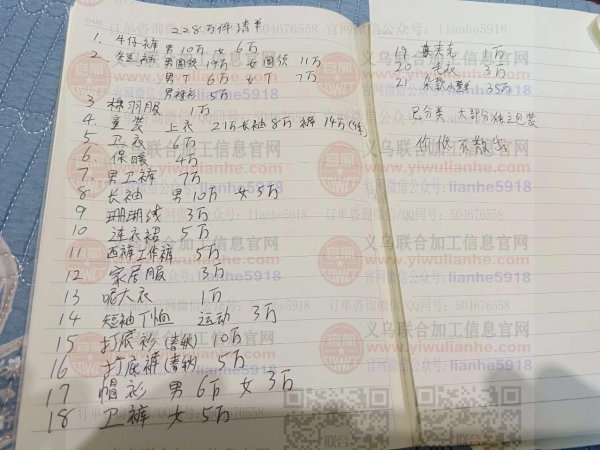 DATE
228万件清单
1. 牛仔裤 男10万 女6万
2. 男圆领 19万 女圆领 11万
男T 6万 女T 7万
男棉衫 5万
3 棉羽服 1万
4 童装 上衣 21万 长袖8万 裤14万
5 卫衣 6万
6. 保暖 4万
7. 男卫裤 7万
8. 长袖 男10万 女5万
9 珊瑚绒 3万
10 连衣裙 5万
11 西裤工作裤 5万
12 家居服 3万
13 呢大衣 1万
14 短袖T恤 运动 3万
15 打底衫(春秋) 10万
16 打底裤(春秋) 5万
17 帽衫 男6万 女3万
18 卫裤 女5万
19 1万
20 毛衣 3万
21 35万
已分类 大部分独立包装
订单咨询微信/QQ同号：504676558
官网微信公众号：lianhe5918
义乌联合加工信息官网
yiwulianhe.com
官网